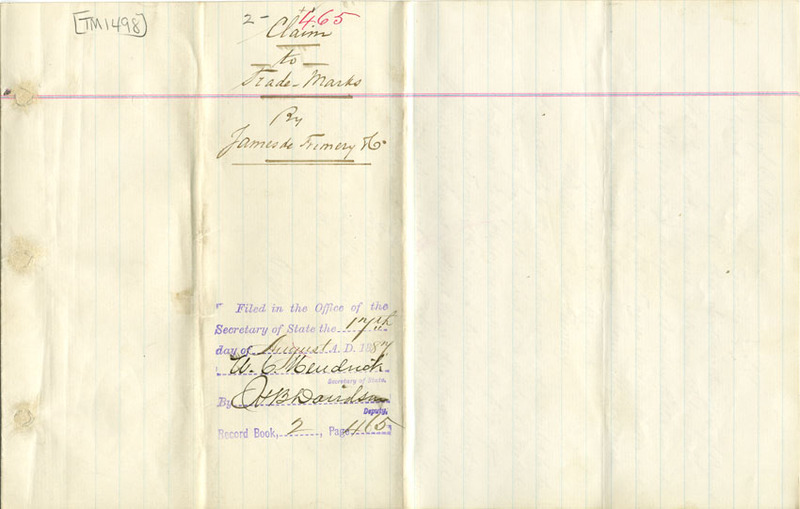 [TM1498]
2- 465
Claim
to
Trade-Marks
By
James de Fremery & Co
Filed in the Office of the
Secretary of State the 17th
day of August A. D. 1887
W. C. Hendrick
Secretary of State.
By H B Davidson
Deputy.
Record Book, 2, Page 465